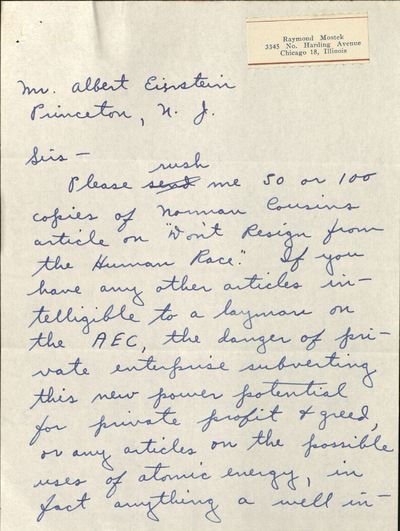 Raymond Mostek
3345 No. Harding Avenue
Chicago 18, Illinois
Mr. Albert Eisnstein
Princeton, N. J.
Sirs —
rush
Please send me 50 or 100
copies of Norman Cousins
article on "Don't Resign from
the Human Race." If you
have any other articles in-
telligible to a layman on
the AEC, the danger of pri-
vate enterprise subverting
this new power potential
for private profit & greed,
or any articles on the possible
uses of atomic energy, in
fact anything a well in-